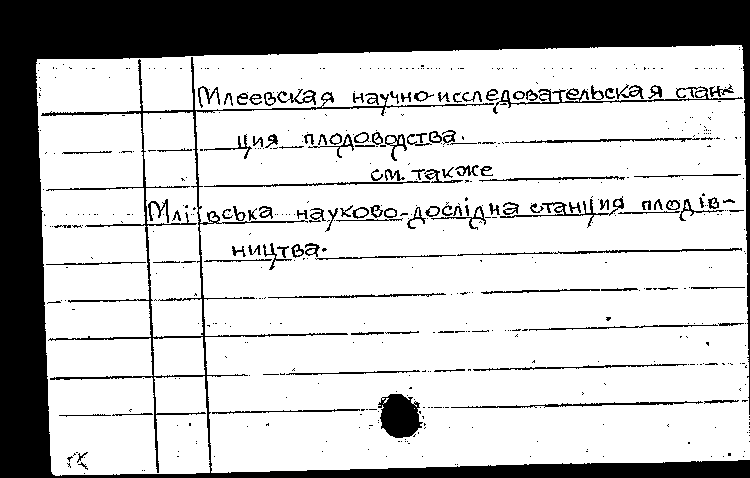 Млеевская научно-исследовательская стан-
ция плодоводства.
см. также
Мліївська науково-дослідна станция плодів-
ництва.